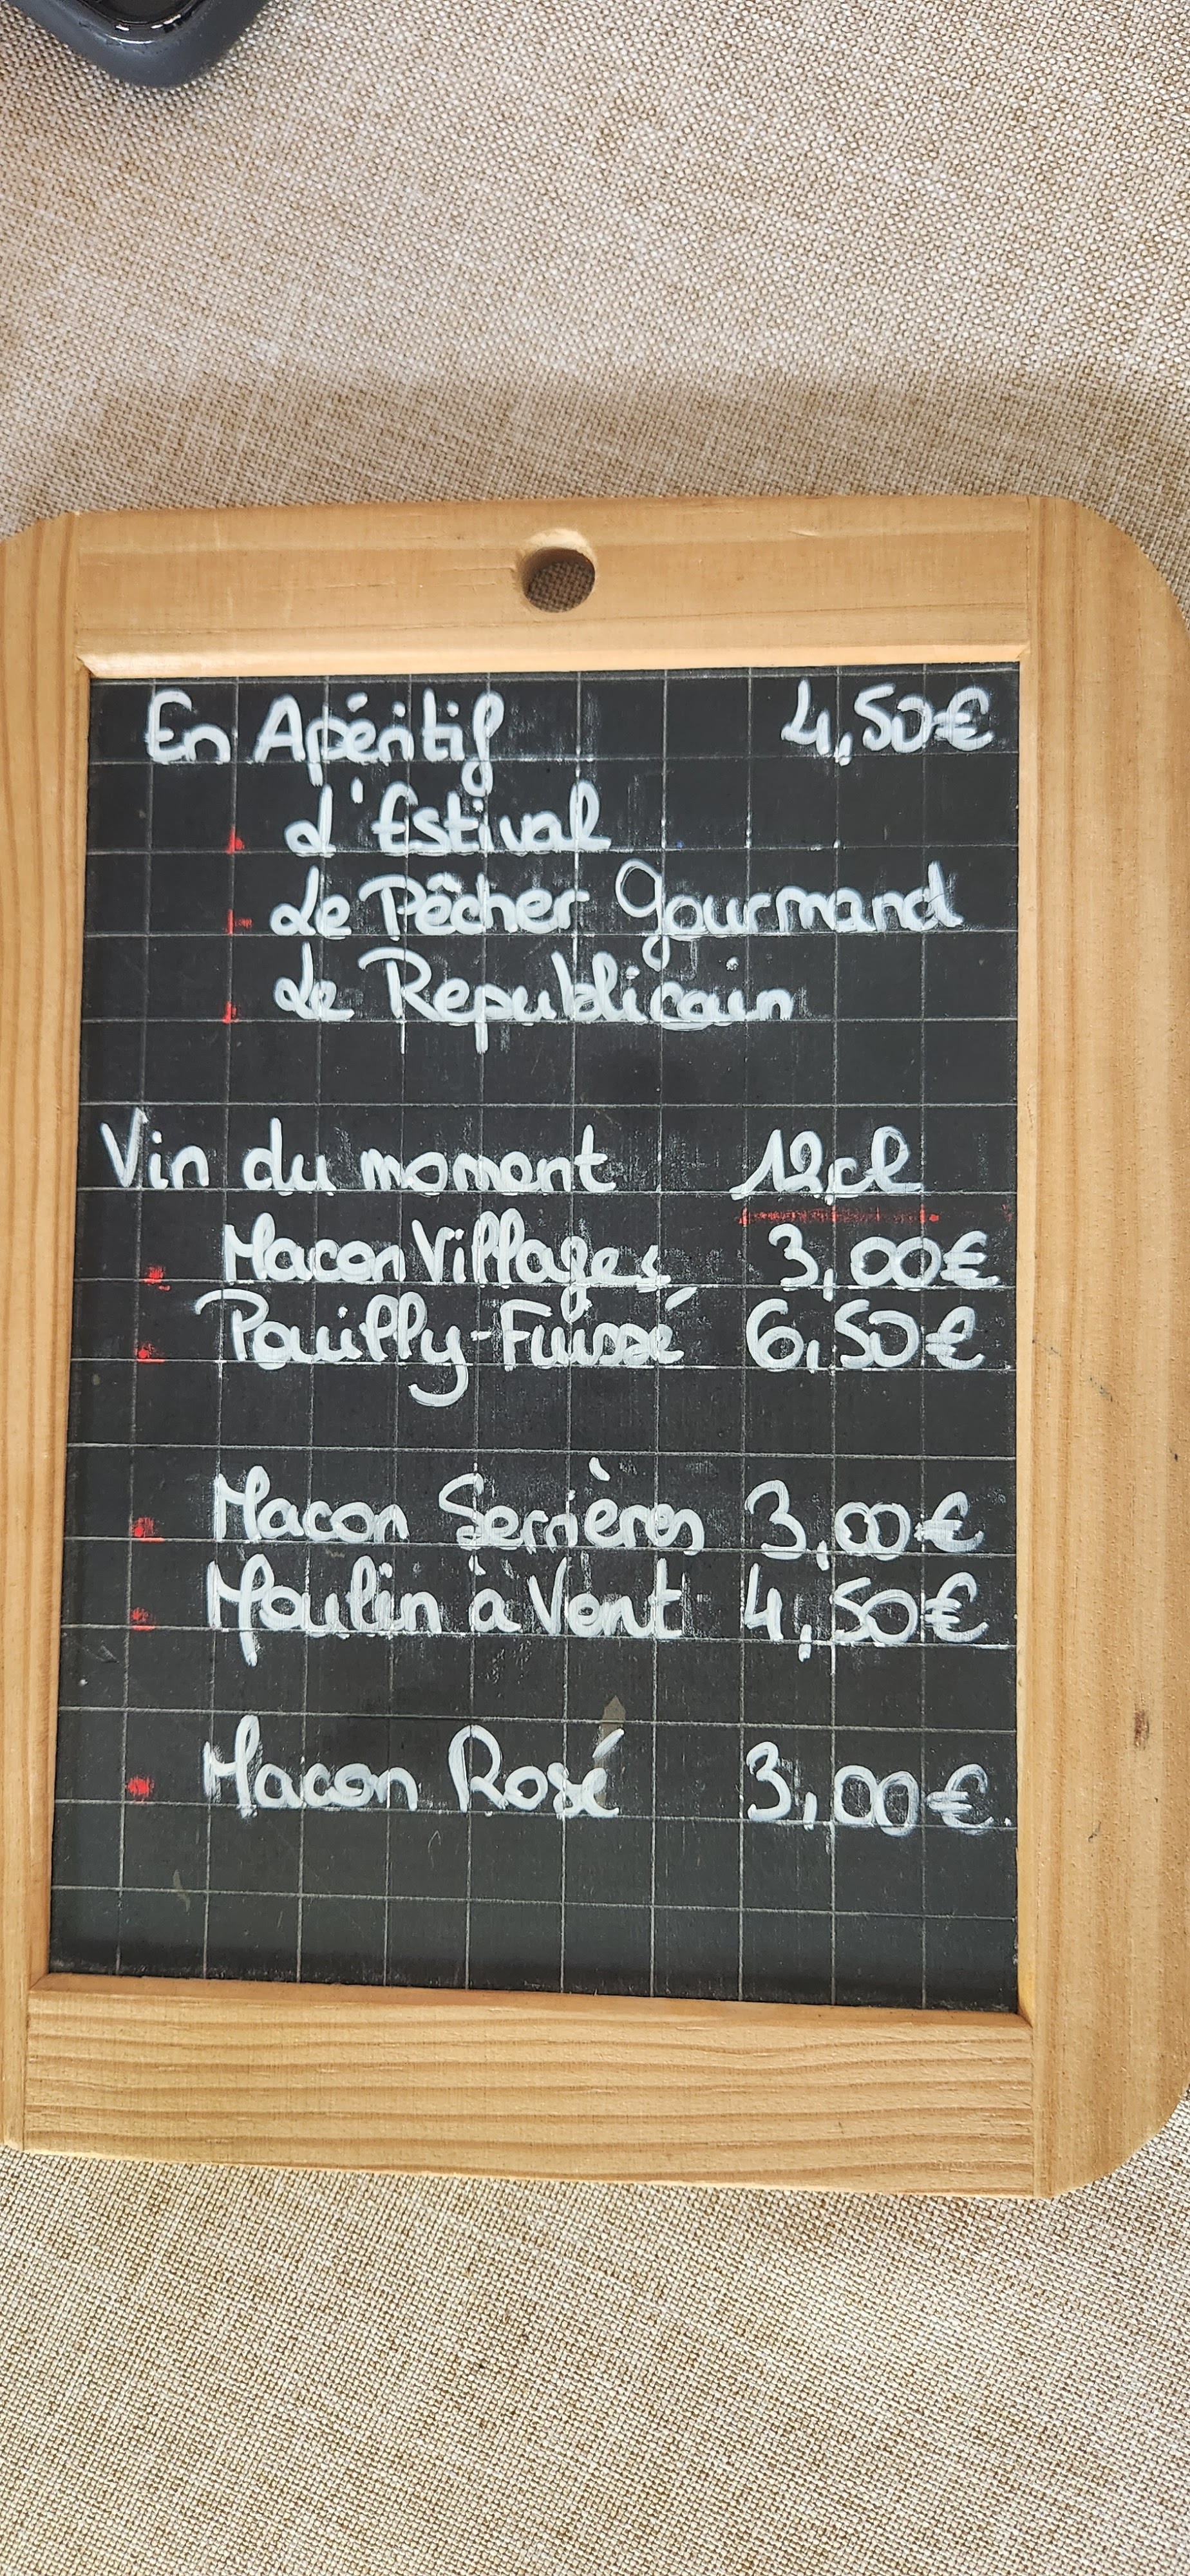 En Apéritif 4,50€
L'Estival
Le Pêcher Gourmand
Le Republicain
Vin du moment 12cl
Macon Villages 3,00€
Pouilly-Fuissé 6,50€
Macon Serrières 3,00€
Moulin à Vent 4,50€
Macon Rosé 3,00€